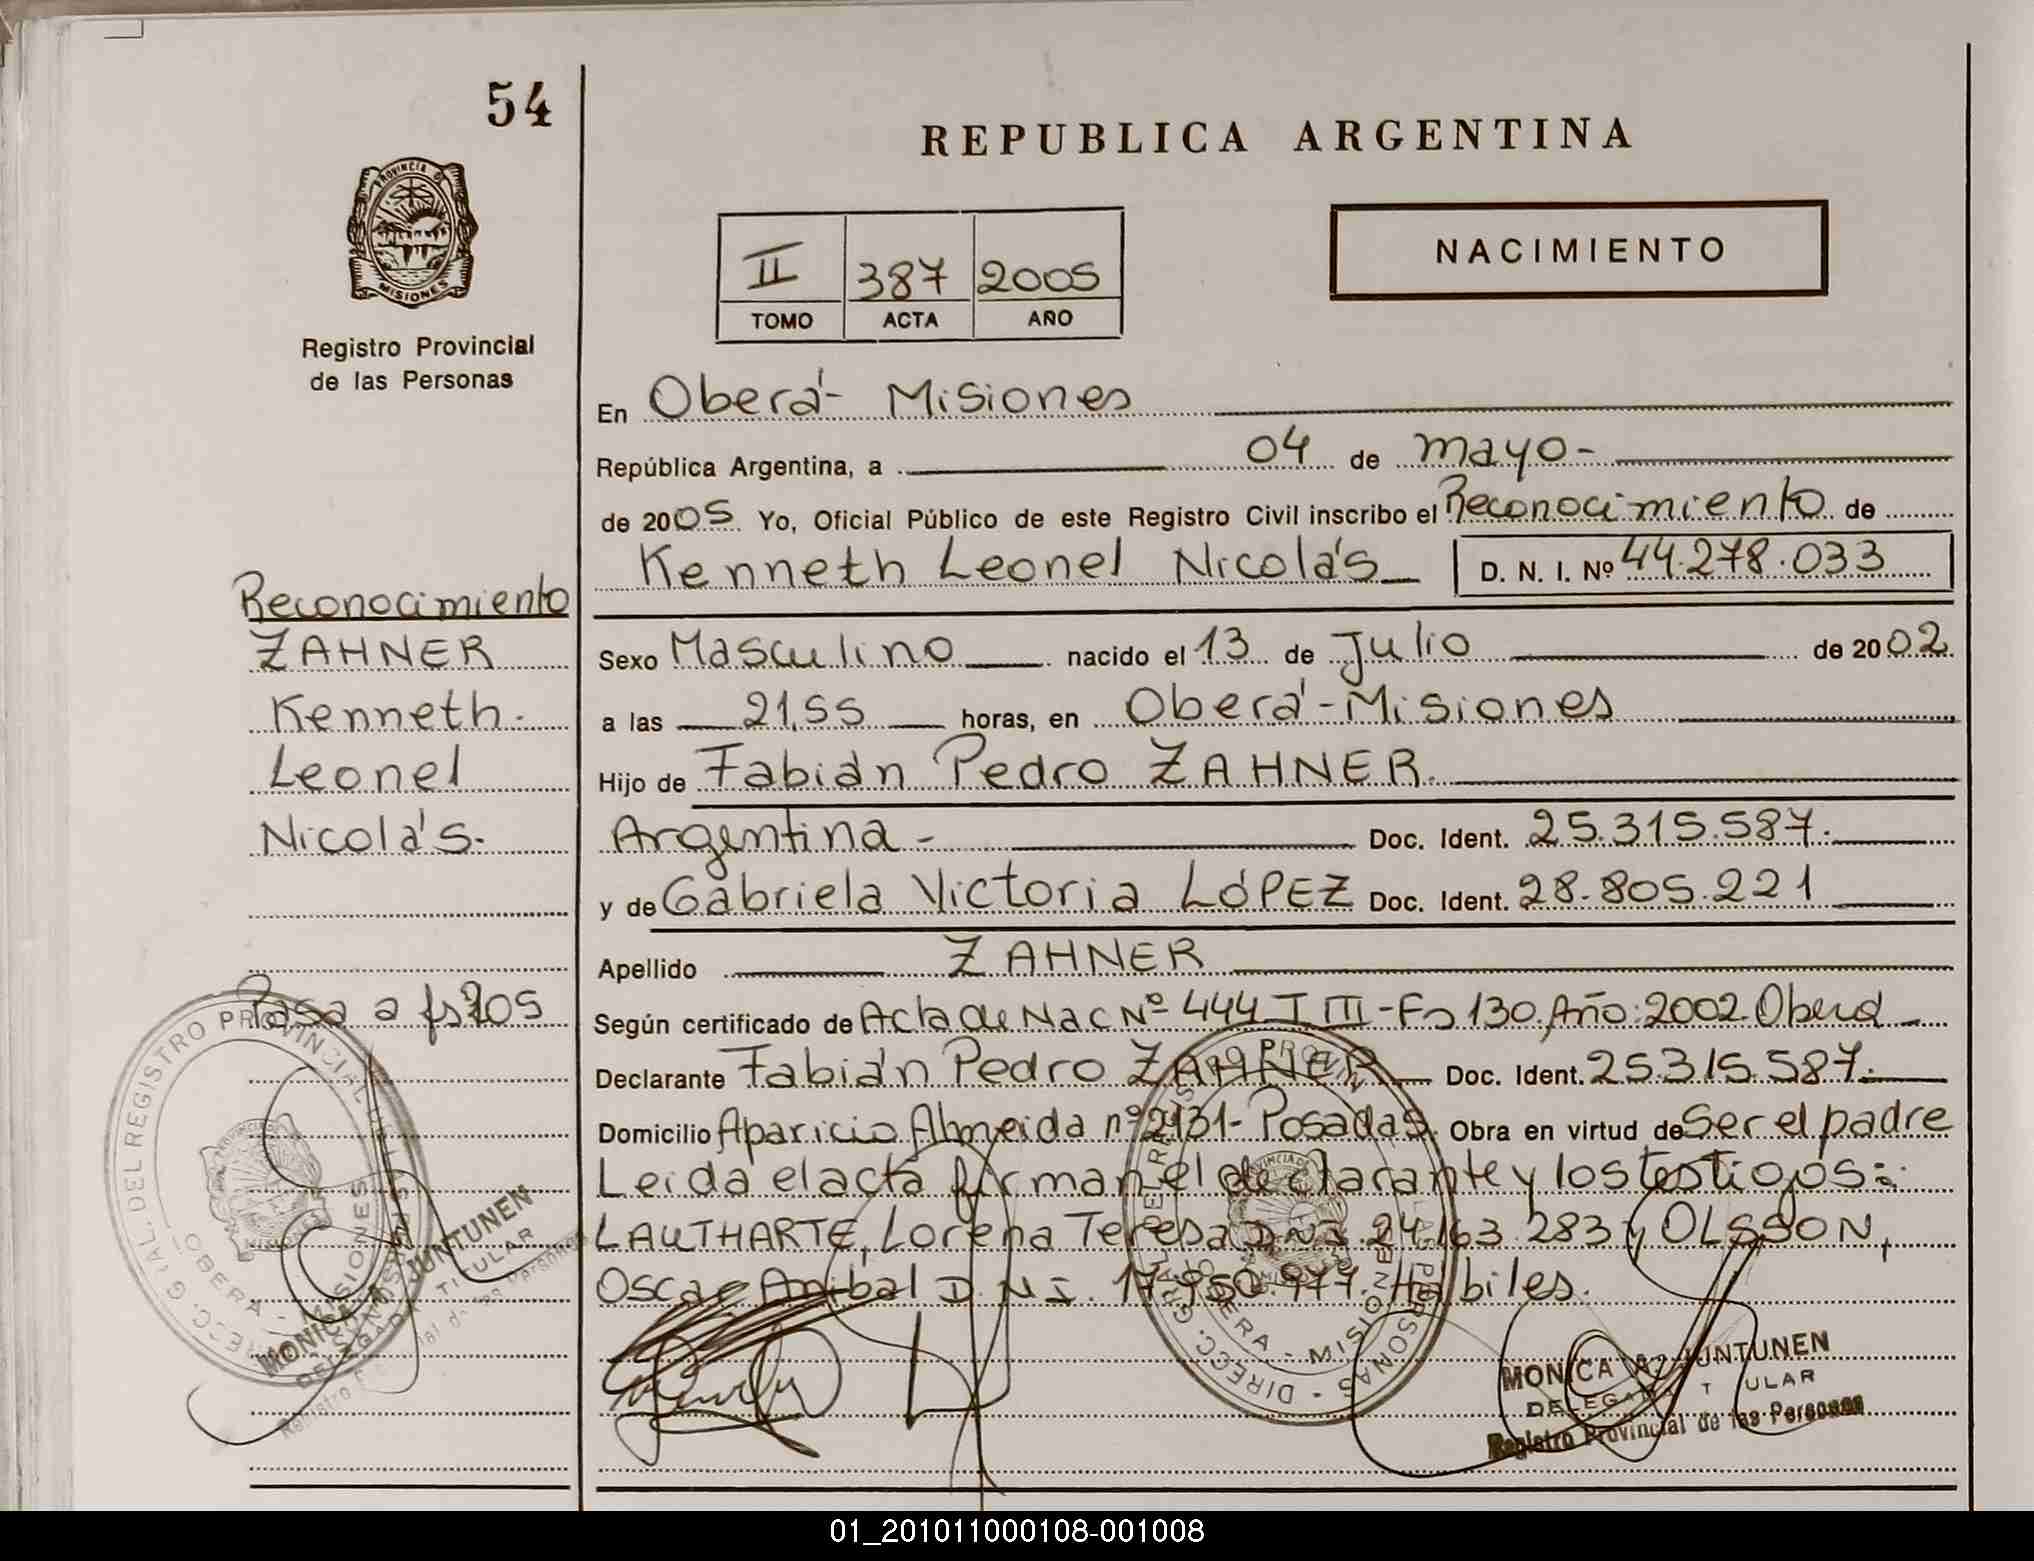 54
PROVINCIA DE
MISIONES
Registro Provincial
de las Personas
REPUBLICA ARGENTINA
NACIMIENTO
II 387 2005
TOMO ACTA AÑO
En Oberá- Misiones
República Argentina, a 04 de mayo-
de 2005 Yo, Oficial Público de este Registro Civil inscribo el Reconocimiento de
Kenneth Leonel Nicolás D. N. I. Nº 44.278.033
Sexo Masculino nacido el 13 de Julio de 2002
a las 21,55 horas, en Oberá-Misiones
Hijo de Fabián Pedro ZAHNER.
Argentina- Doc. Ident. 25.315.587.
y de Gabriela Victoria LÓPEZ Doc. Ident. 28.805.221
Apellido ZAHNER
Según certificado de Acta de Nac Nº 444 T III-Fs 130. Año: 2002. Oberá
Declarante Fabián Pedro ZAHNER Doc. Ident. 25.315.587.
Domicilio Aparicio Almeida nº 2131- Posadas. Obra en virtud de Ser el padre
Leida el acta firman el declarante y los testigos:
LAUTHARTE, Lorena Teresa D.N.I. 24.163.283 y OLSSON,
Oscar Anibal D.N.I. 17.950.977. Hábiles.
MONICA A. JUNTUNEN
DELEGADA TITULAR
Registro Provincial de las Personas
DIRECC. GRAL. DEL REGISTRO PROVINCIAL DE LAS PERSONAS
OBERA - MISIONES
Reconocimiento
ZAHNER
Kenneth.
Leonel
Nicolás.
Pasa a fs 205
DIRECC. GRAL. DEL REGISTRO PROVINCIAL DE LAS PERSONAS
OBERA - MISIONES
MONICA A. JUNTUNEN
DELEGADA TITULAR
Registro Provincial de las Personas
01_201011000108-001008